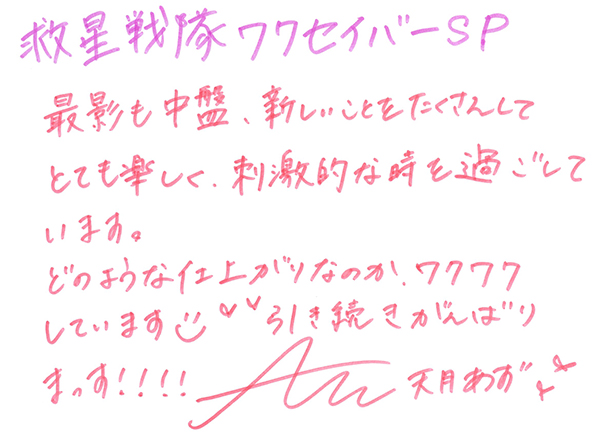 救星戦隊ワクセイバーSP
最影も中盤、新しいことをたくさんして
とても楽しく、刺激的な時を過ごして
います。
どのような仕上がりなのか、ワクワク
しています 引き続きがんばり
まっす!!!! 天月あず